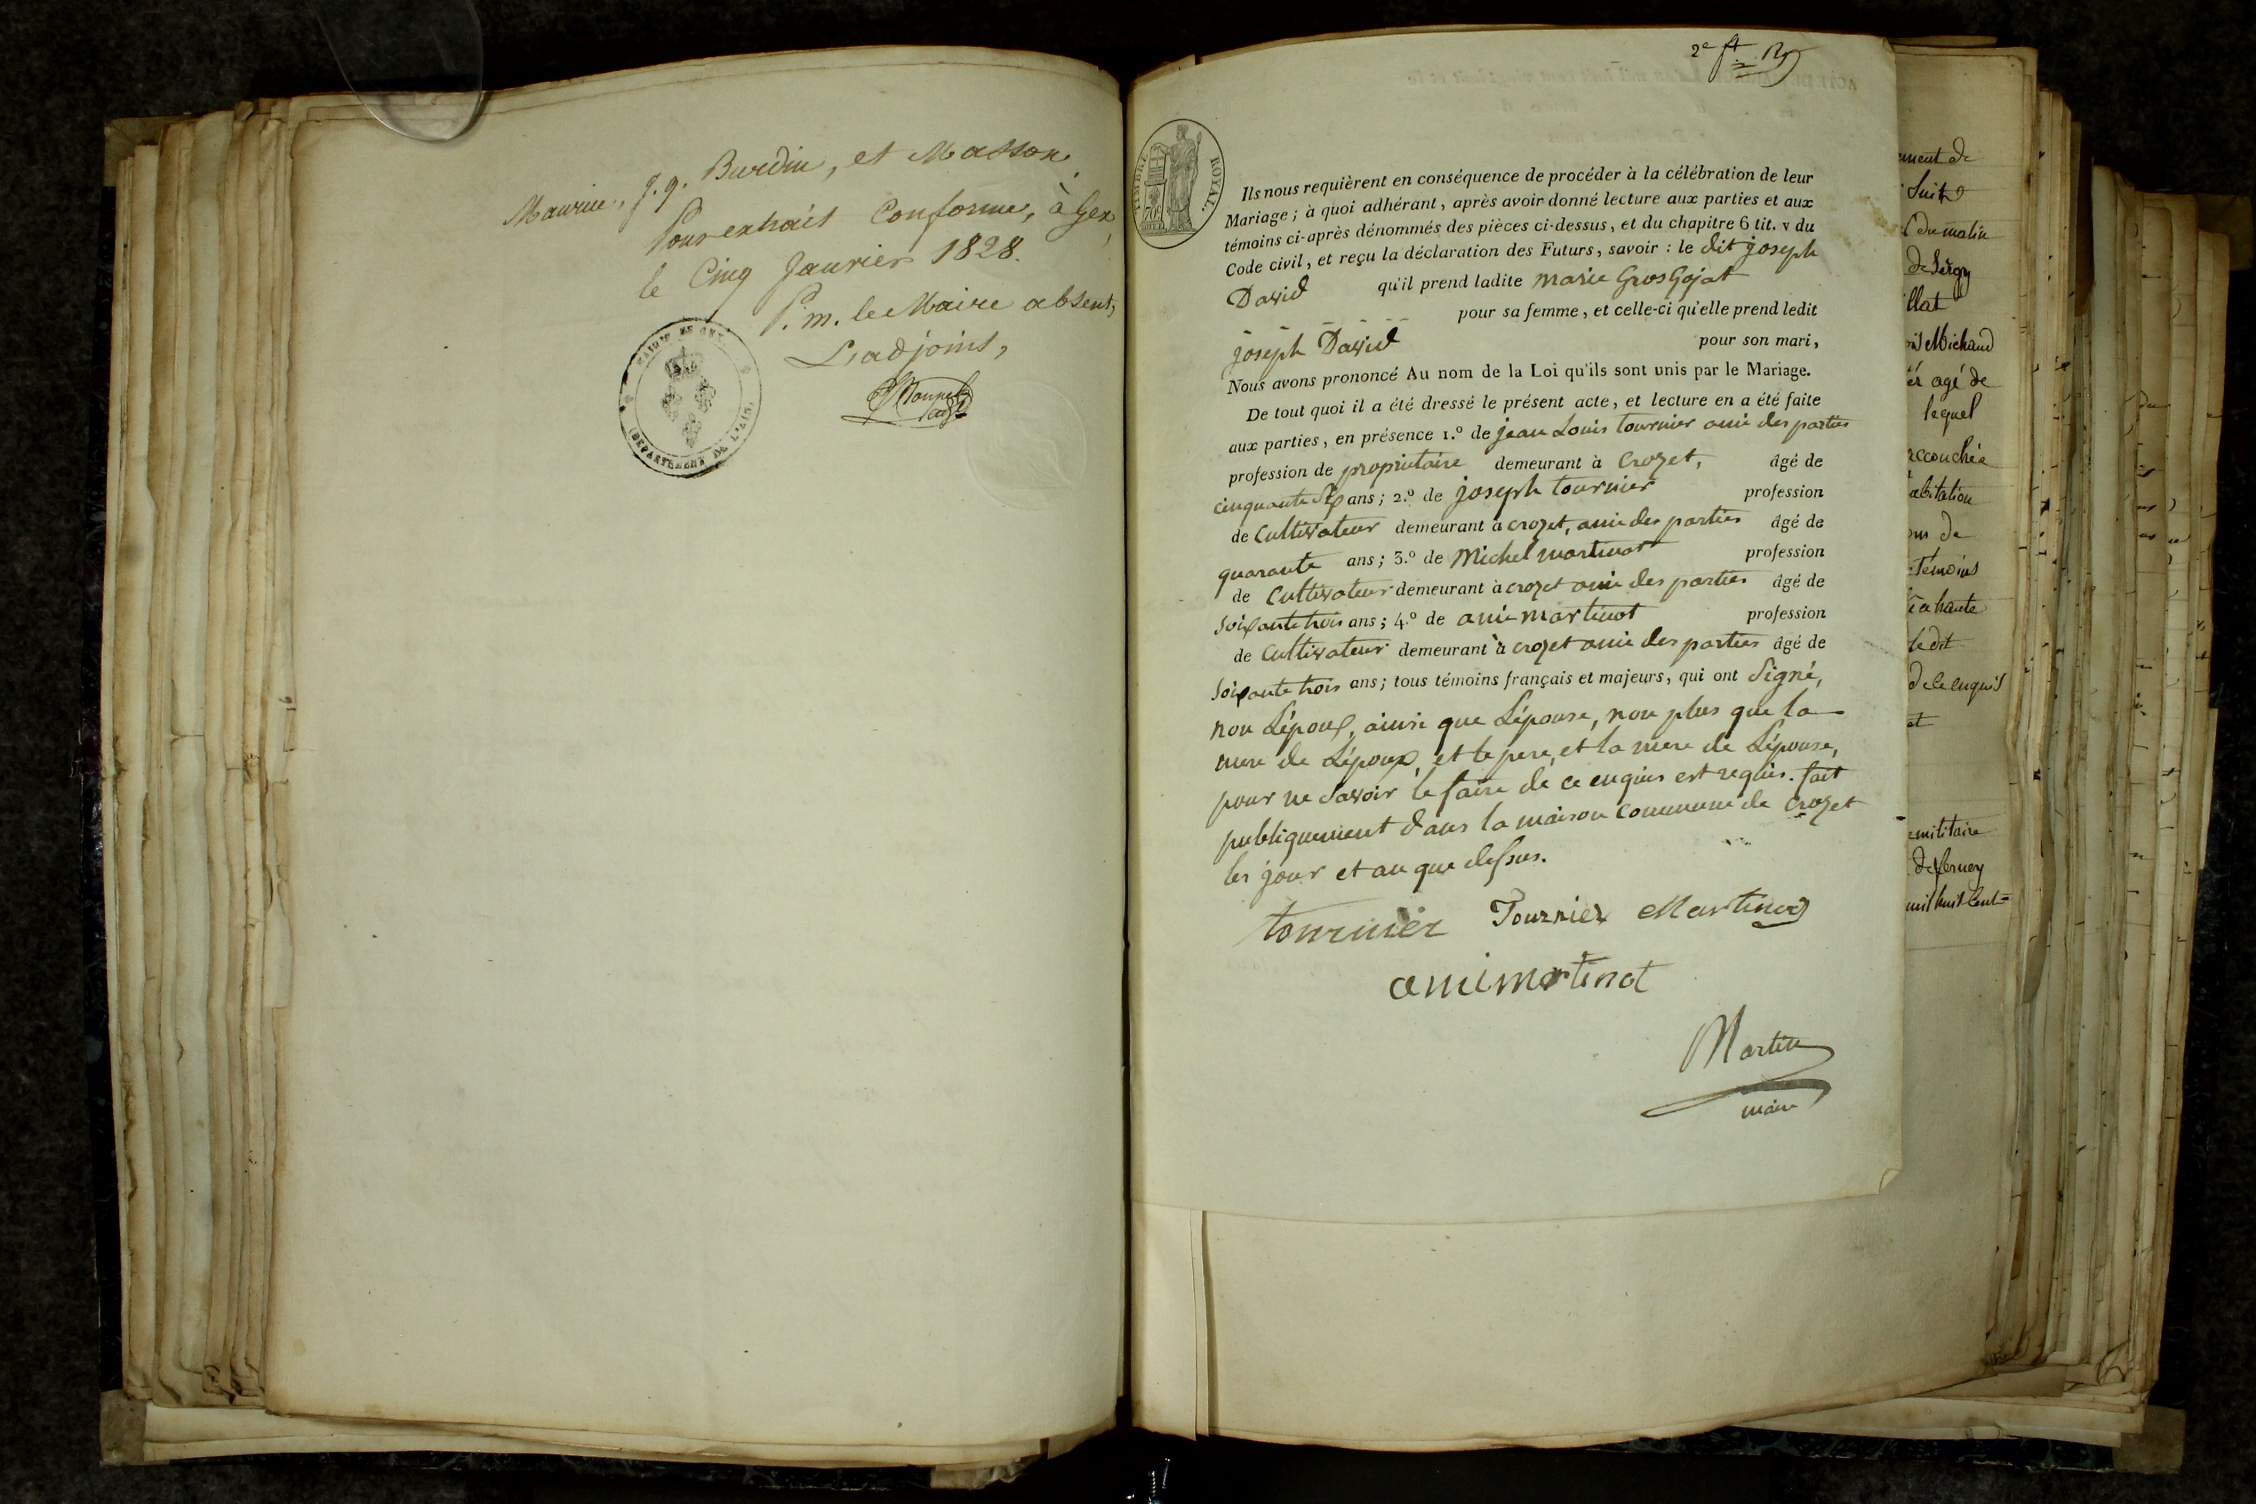 Maurice, J. g. Burdin, et Masson.
Pour extrait Conforme, à Gex,
le Cinq Janvier 1828.
P. m. le Maire absent,
L'adjoint,
MAIRIE DE GEX
(DÉPARTEMENT DE L'AIN)
2e
TIMBRE ROYAL
70c
Ils nous requièrent en conséquence de procéder à la célébration de leur
Mariage ; à quoi adhérant, après avoir donné lecture aux parties et aux
témoins ci-après dénommés des pièces ci-dessus, et du chapitre 6 tit. v du
Code civil, et reçu la déclaration des Futurs, savoir : le dit joseph
David qu'il prend ladite marie GrosGojat
pour sa femme, et celle-ci qu'elle prend ledit
joseph David pour son mari,
Nous avons prononcé Au nom de la Loi qu'ils sont unis par le Mariage.
De tout quoi il a été dressé le présent acte, et lecture en a été faite
aux parties, en présence 1.º de jean Louis tournier amie des parties
profession de propriétaire demeurant à Crozet, âgé de
cinquante ans ; 2.º de joseph tournier profession
de Cultivateur demeurant à crozet, amie des parties âgé de
quarante ans ; 3.º de Michel martinot profession
de Cultivateur demeurant à crozet amie des parties âgé de
soixante trois ans ; 4.º de ami martinot profession
de Cultivateur demeurant à crozet amie des parties âgé de
soixante trois ans ; tous témoins français et majeurs, qui ont signé,
non L'époux, ainsi que L'épouse, non plus que la
mere de L'époux, et le pere, et la mere de L'épouse,
pour ne savoir le faire de ce enquis est requis. fait
publiquement dans la maison commune de Crozet
les jour et an que dessus.
tournier Tournier Martinot
ami martinot
Martin
maire
ment de
suite
du matin
de Sergy
llat
Michaud
agé de
lequel
accouchée
abitation
de
Temoins
le dit
et
militaire
de ferney
mil huit Cent=